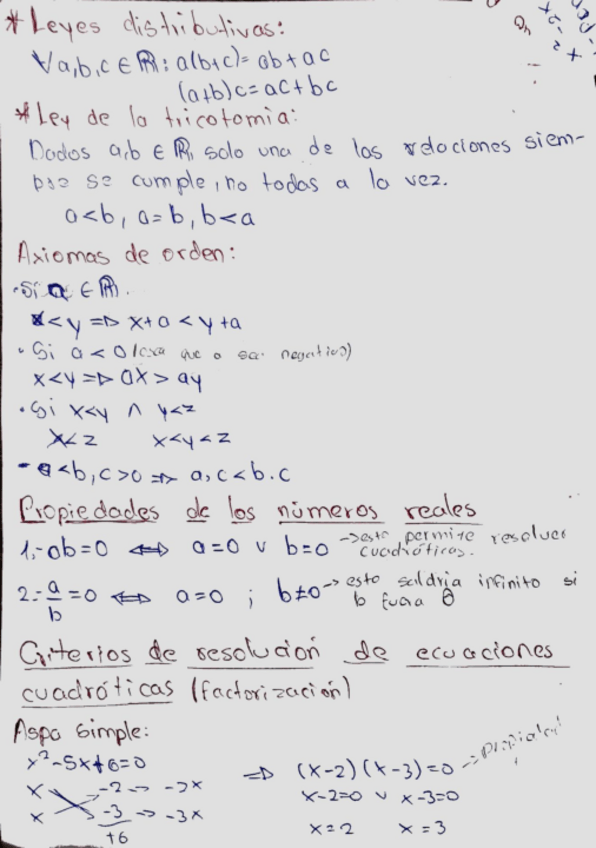 * Leyes distributivas:
∀a,b,c ∈ ℝ: a(b+c) = ab + ac
(a+b)c = ac + bc
* Ley de la tricotomia:
Dados a,b ∈ ℝ, solo una de las relaciones siem-
pre se cumple, no todas a la vez.
a<b, a=b, b<a
Axiomas de orden:
· Si a ∈ ℝ.
x<y ⇒ x+a < y+a
· Si a < 0 (cxa que a sea negativo)
x<y ⇒ ax > ay
· Si x<y ∧ y<z
x<z x<y<z
- a<b, c>0 ⇒ a.c < b.c
Propiedades de los números reales
1.- ab=0 ⇔ a=0 v b=0 → esto permite resolver
cuadráticas.
2.- a/b = 0 ⇔ a=0 ; b≠0 → esto saldria infinito si
b fuera 0
Criterios de resolución de ecuaciones
cuadráticas (factorización)
Aspa simple:
x²-5x+6=0
x -2 → -2x ⇒ (x-2)(x-3)=0 → propiedad
x -3 → -3x x-2=0 v x-3=0
+6 x=2 x=3